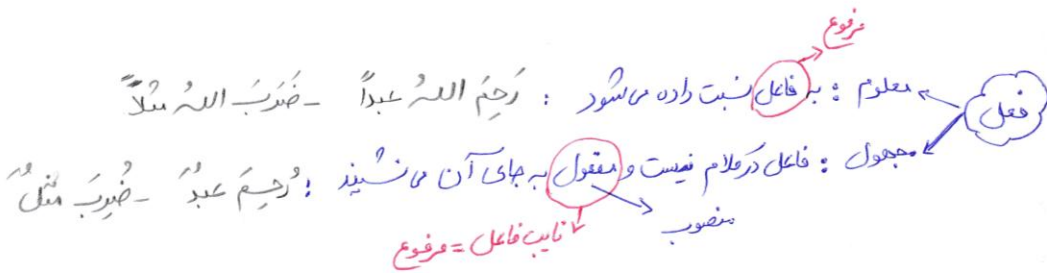 مرفوع
فعل
معلوم : به فاعل نسبت داده می‌شود : رَحِمَ اللهُ عبداً - ضَرَبَ اللهُ مثلاً
مجهول : فاعل در کلام نیست و مفعول به جای آن می‌نشیند : رُحِمَ عبدٌ - ضُرِبَ مثلٌ
منصوب
نایب فاعل = مرفوع